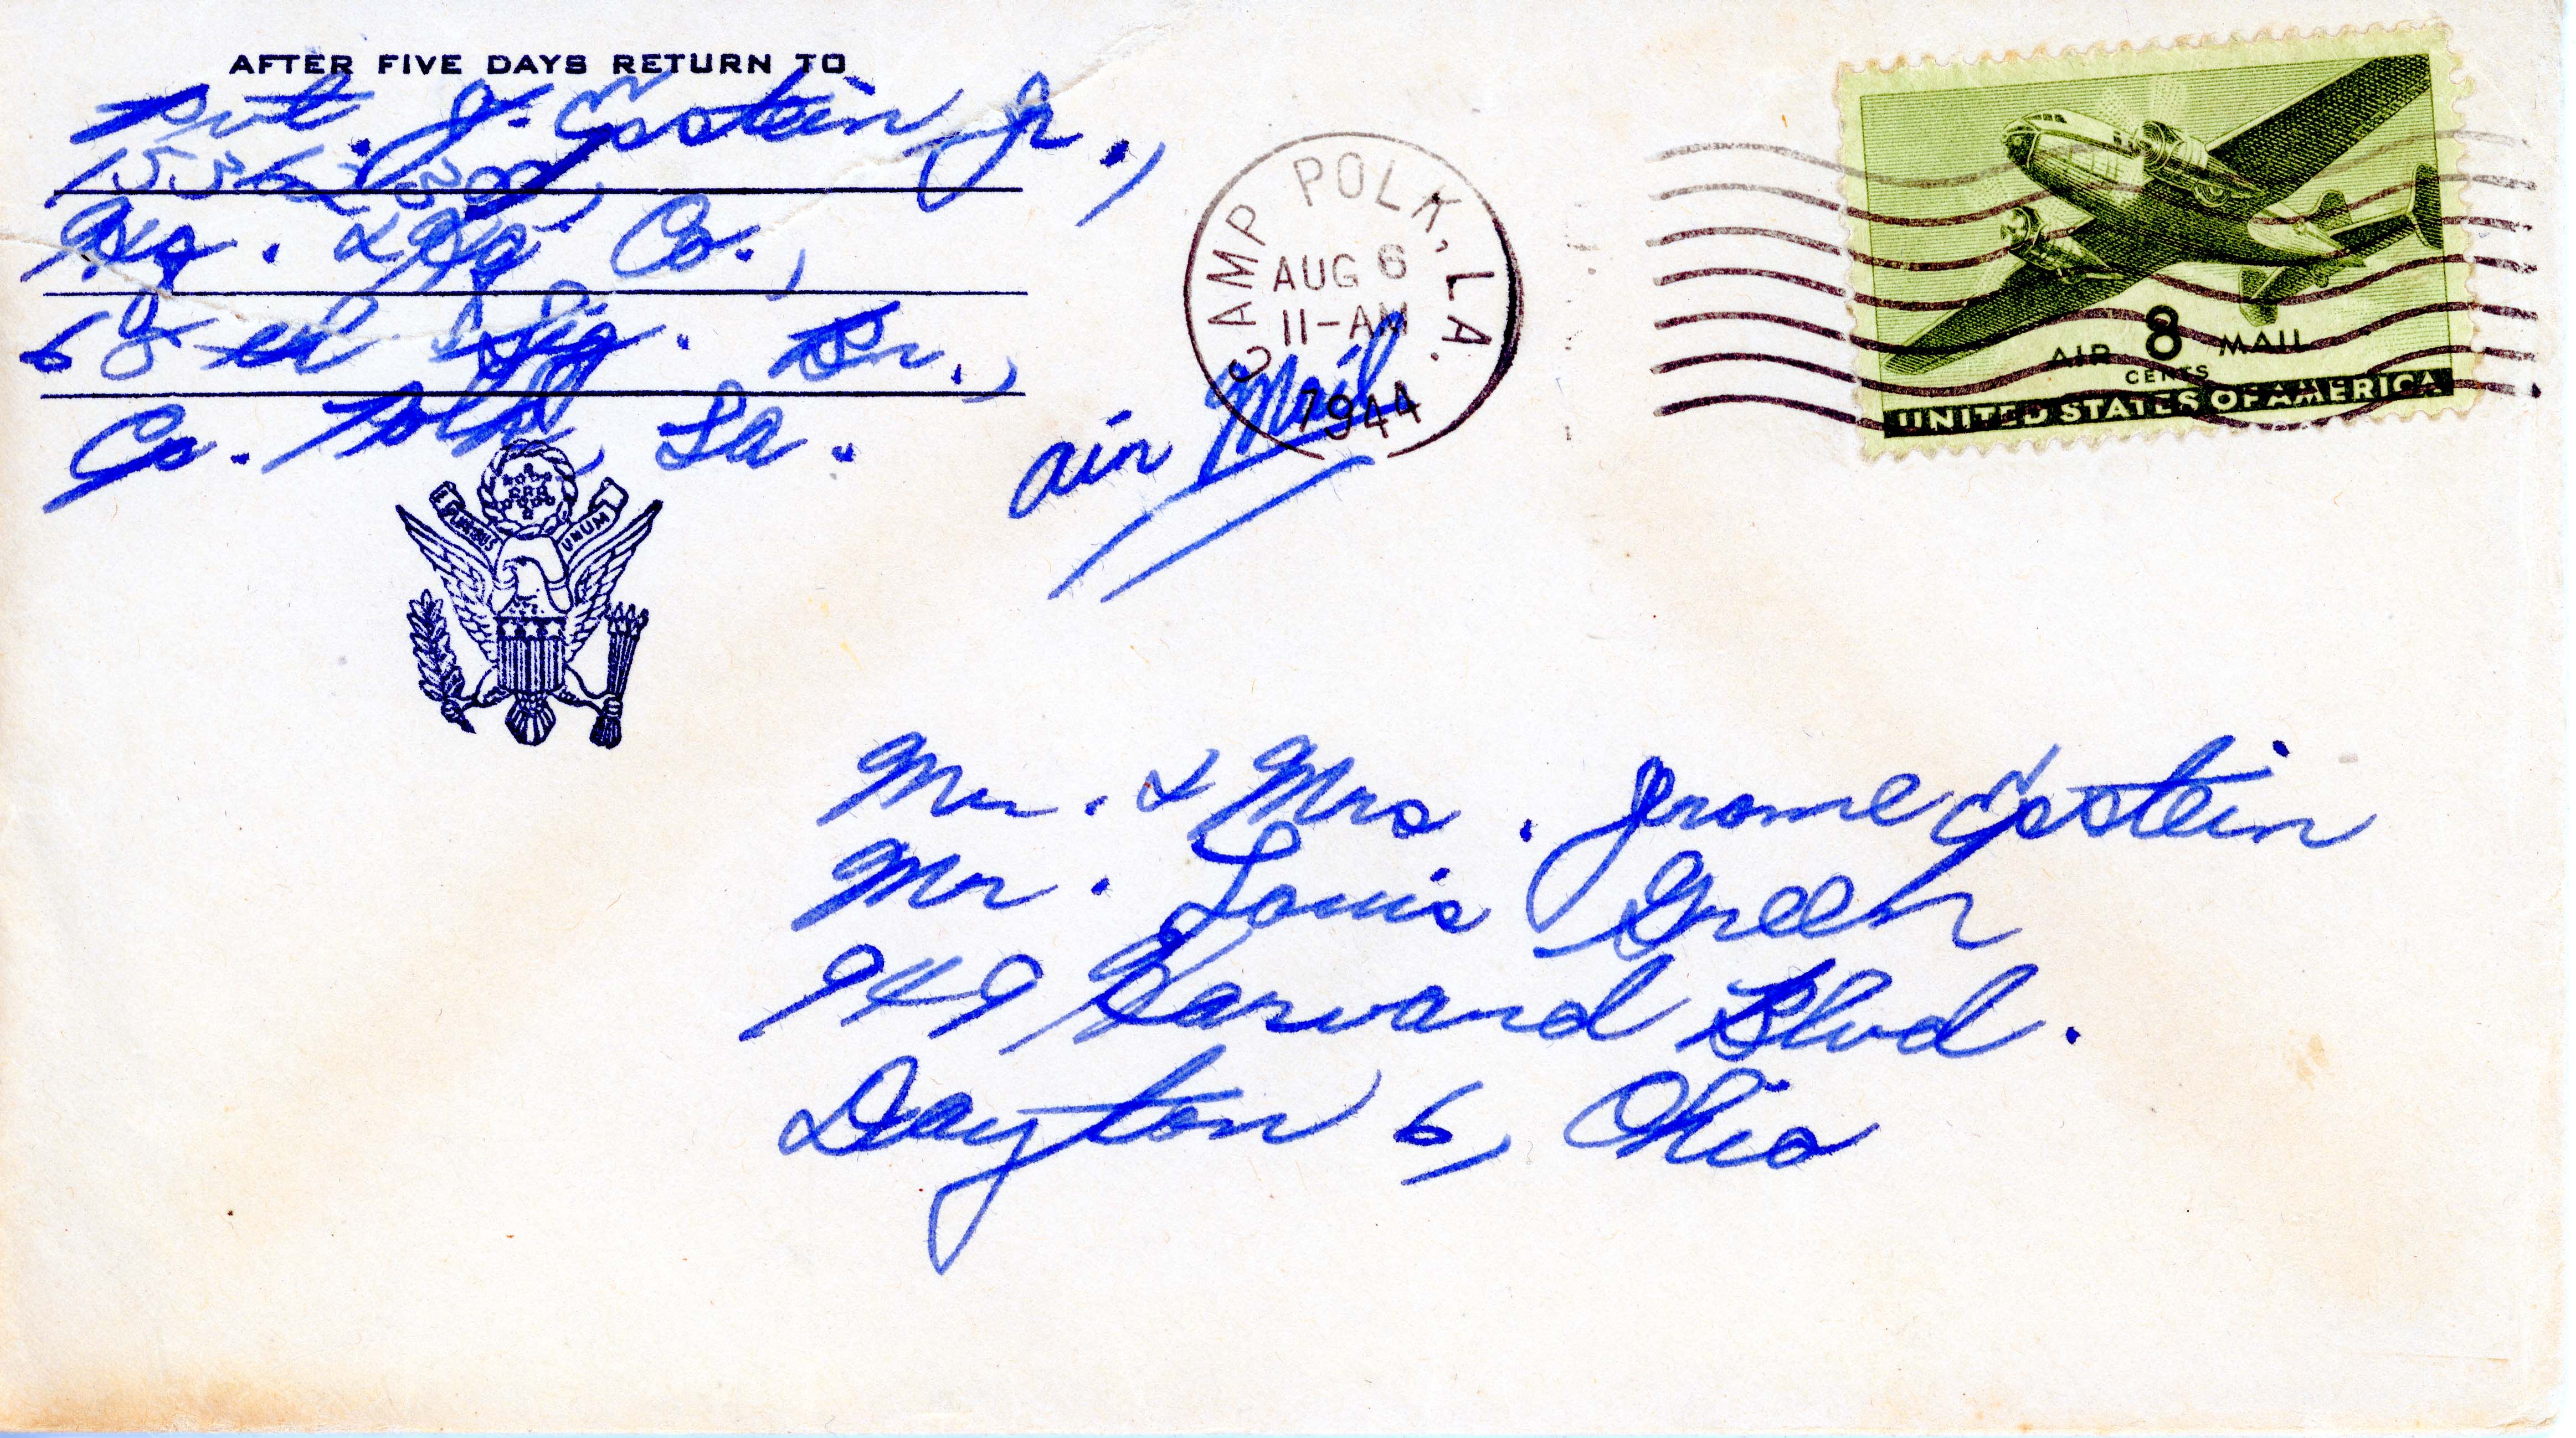 AFTER FIVE DAYS RETURN TO
Pvt. J. Epstein Jr.,
Hq. & Hq. Co.,
68 Sig. Bn.,
Co. Polk, La.
E PLURIBUS UNUM
CAMP POLK, LA.
AUG 6
11-AM
1944
air Mail
AIR 8 MAIL
CENTS
UNITED STATES OF AMERICA
Mr. & Mrs. Jerome Epstein
Mr. Louis Green
949 Harvard Blvd.
Dayton 6, Ohio